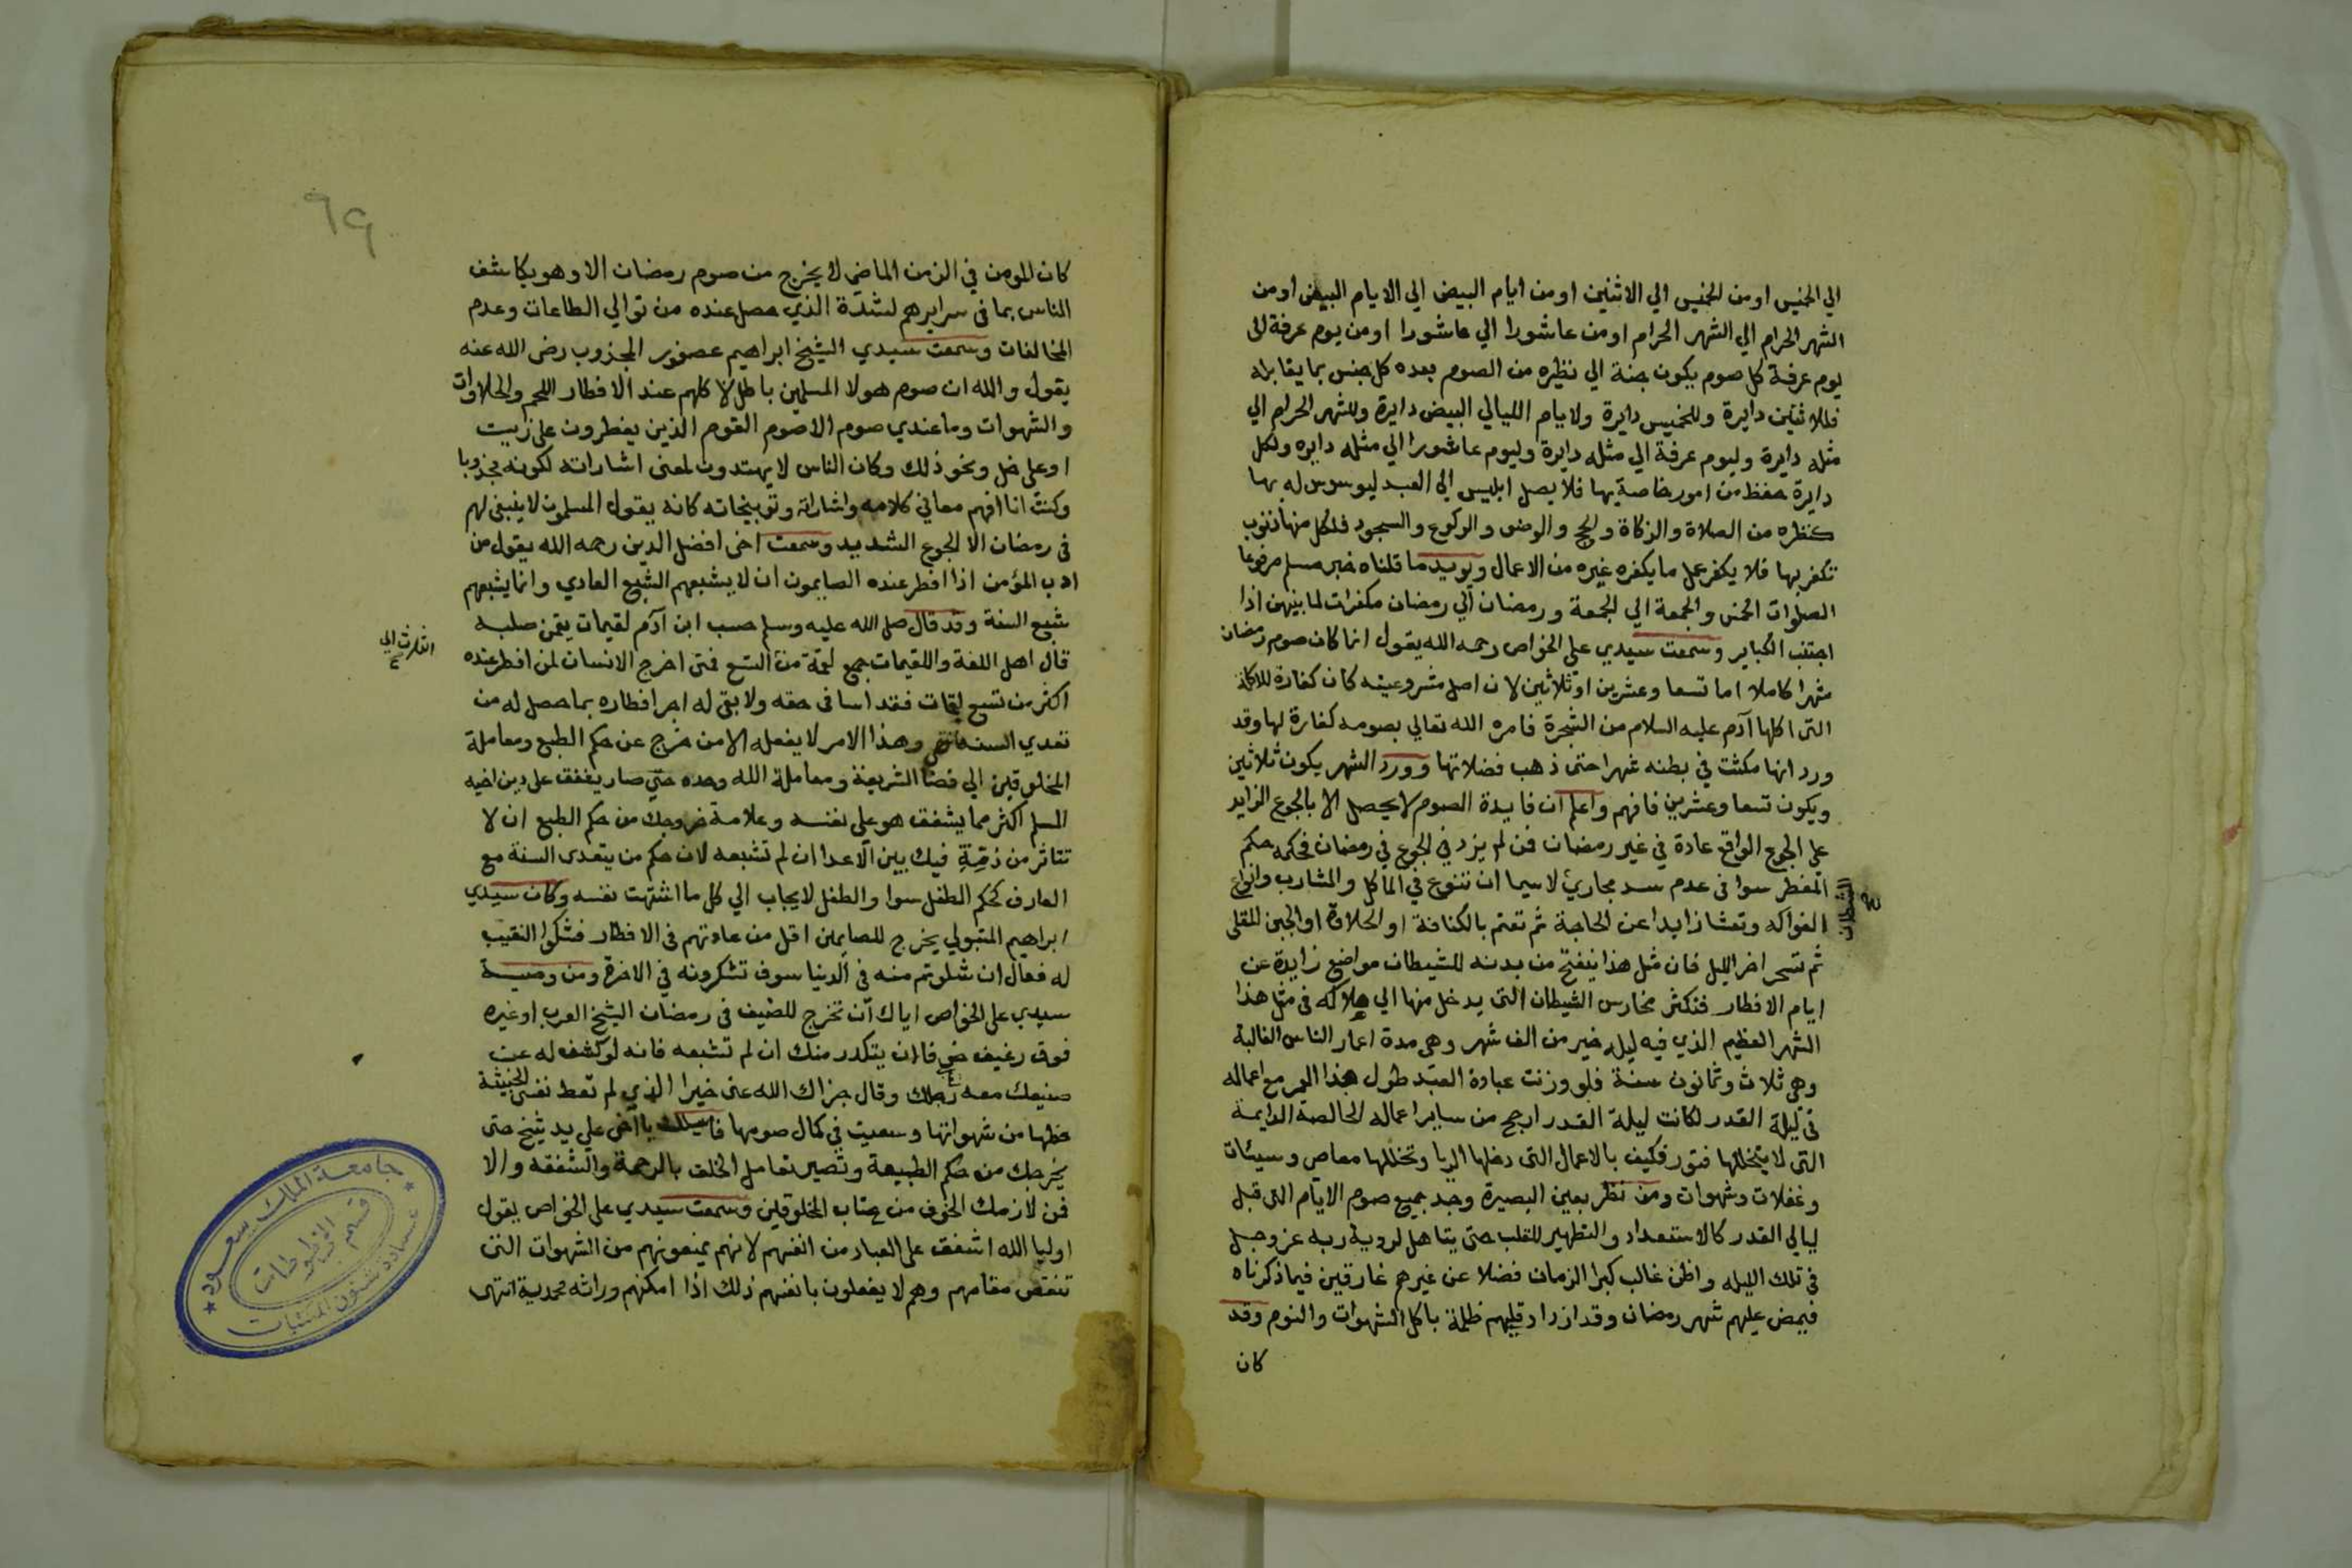 الي الخميس اومن الخميس الي الاثنين اومن ايام البيض الي الايام البيض اومن
الشهر الحرام الي الشهر الحرام اومن عاشورا الي عاشورا اومن يوم عرفة الى
يوم عرفة كل صوم يكون جنة الي نظيره من الصوم بعده كل جنس بما يقابله
فللاثنين دايرة وللخميس دايرة ولايام الليالي البيض دايرة وللشهر الحرام الي
مثله دايرة وليوم عرفة الي مثله دايرة وليوم عاشورا الي مثله دايره ولكل
دايرة حفظ من امور خاصة بها فلا يصل ابليس الى العبد ليوسوس له بها
كنظره من الصلاة والزكاة والحج والوضو والركوع والسجود فلكل منها ذنوب
تكفر بها فلا يكفر عمل ما يكفره غيره من الاعمال ويويد ما قلناه خبر مسلم مرفوعا
الصلوات الخمس والجمعة الي الجمعة ورمضان الي رمضان مكفرات لما بينهن اذا
اجتنب الكباير وسمعت سيدي علي الخواص رحمه الله يقول انما كان صوم رمضان
شهرا كاملا اما تسعا وعشرين او ثلاثين لان اصل مشروعيته كان كفارة للاكلة
التى اكلها آدم عليه السلام من الشجرة فامره الله تعالي بصومه كفارة لها وقد
ورد انها مكثت في بطنه شهرا حتى ذهب فضلاتها وورد الشهر يكون ثلاثين
ويكون تسعا وعشرين فافهم واعلم ان فايدة الصوم لا يحصل الا بالجوع الزايد
علي الجوع الواقع عادة في غير رمضان فمن لم يزد في الجوع في رمضان فحكمه حكم
المفطر سوا فى عدم سد مجاري لاسيما ان تنوع في المآكل والمشارب وانواع
الشيطان
صح
الفواكه وتعشا زايدا عن الحاجة ثم تعتم بالكنافة او الحلاوة او الجبن المقلى
ثم تسحر اخر الليل فان مثل هذا ينفتح من بدنه للشيطان مواضع زايدة عن
ايام الافطار فتكثر مخارس الشيطان التى يدخل منها الي هلاكه فى مثل هذا
الشهر العظيم الذي فيه ليلة خير من الف شهر وهى مدة اعمار الناس الغالبة
وهى ثلاث وثمانون سنة فلو وزنت عبادة العبد طول هذا العمر مع اعماله
فى ليلة القدر لكانت ليلة القدر ارجح من ساير اعماله الخالصة الدايمة
التى لا يتخللها فتور فكيف بالاعمال التى دخلها الريا وتخللها معاص وسيئات
وغفلات وشهوات ومن نظر بعين البصيرة وجد جميع صوم الايام التى قبل
ليالي القدر كالاستعداد والتطهير للقلب حتى يتاهل لروية ربه عز وجل
فى تلك الليله واظن غالب كبرا الزمان فضلا عن غيرهم غارقين فيما ذكرناه
فيمض عليهم شهر رمضان وقد ازدادا قلبهم ظلمة باكل الشهوات والنوم وقد
كان
٩٩
كان المومن في الزمن الماضى لا يخرج من صوم رمضان الا وهو يكاشف
الناس بما فى سرايرهم لشدة الذي حصل عنده من توالي الطاعات وعدم
المخالفات وسمعت سيدي الشيخ ابراهيم عصفور المجذوب رضى الله عنه
يقول والله ان صوم هولا المسلمين باطل لاكلهم عند الافطار اللحم والحلاوات
والشهوات وما عندي صوم الا صوم القوم الذين يفطرون على زبيب
او على خل ونحو ذلك وكان الناس لا يهتدون لمعنى اشاراته لكونه مجذوبا
وكنت انا افهم معاني كلامه واشاراته وتوبيخاته كانه يقول المسلمون لا ينبغى لهم
فى رمضان الا الجوع الشديد وسمعت اخى افضل الدين رحمه الله يقول من
ادب المؤمن اذا افطر عنده الصايمون ان لا يشبعهم الشبع العادي وانما يشبعهم
شبع السنة وقد قال صلى الله عليه وسلم حسب ابن آدم لقيمات يقمن صلبه
قال اهل اللغة واللقيمات جمع لقمة من التسع فمتى اخرج الانسان لمن افطر عنده
اكثر من تسع لقمات فقد اسا فى حقه ولا بقى له اجر افطاره بما حصل له من
تعدي السنه وهذا الامر لا يفعله الا من خرج عن حكم الطبع ومعاملة
المخلوقين الي فضا الشريعة ومعاملة الله وحده حتي صار يشفق على دين اخيه
المسلم اكثر مما يشفق هو على نفسه وعلامة خروجك من حكم الطبع ان لا
تتاثر من ذمته فيك بين الاعدا ان لم تشبعه لان حكم من يتعدى السنة مع
العارف كحكم الطفل سوا والطفل لا يجاب الي كل ما اشتهت نفسه وكان سيدي
ابراهيم المتبولي يخرج للصايمين اقل من عادتهم فى الافطار فشكوا النقيب
له فقال ان شكوتم منه فى الدنيا سوف تشكرونه في الاخرة ومن وصية
سيدي على الخواص اياك ان تخرج للضيف فى رمضان الشيخ العرب اوغيره
فوق رغيف خوفا ان يتكدر منك ان لم تشبعه فانه لو كشف له عن
صنيعك معه رجلك وقال جزاك الله عنى خيرا الذي لم تعط نفسى الخبيثة
حظها من شهواتها وسعيت في كمال صومها فاسلك يا اخى على يد شيخ حتى
يخرجك من حكم الطبيعة وتصير تعامل الخلق بالرحمة والشفقه والا
فمن لازمك الخوف من عتاب المخلوقين وسمعت سيدي على الخواص يقول
اوليا الله اشفق على العباد من انفسهم لانهم يمنعونهم من الشهوات التى
تنقص مقامهم وهم لا يفعلون بانفسهم ذلك اذا امكنهم وراثه محمدية انتهى
جامعة الملك سعود
قسم المخطوطات
عمادة شئون المكتبات